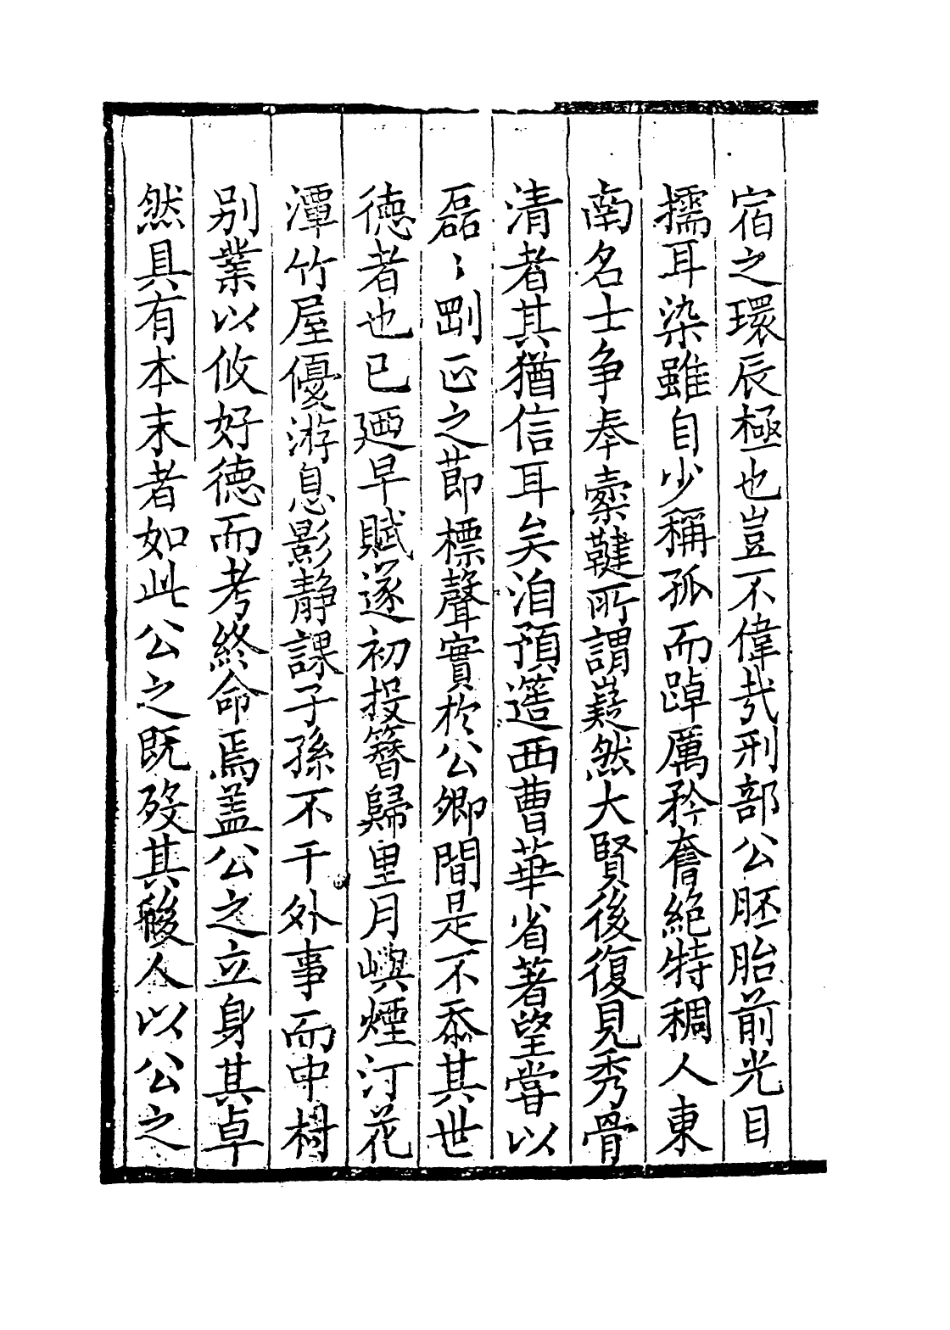 宿之環辰極也豈不偉哉刑部公胚胎前光目
擩耳染雖自少稱孤而踔厲矜奮絕特稠人東
南名士争奉櫜鞬所謂嶷然大賢後復見秀骨
清者其猶信耳矣洎預簉西曹華省著望嘗以
磊〻剛正之節標聲實於公卿間是不忝其世
德者也已廼早賦遂初投簪歸里月嶼煙汀花
潭竹屋優游息影靜課子孫不干外事而中村
别業以攸好德而考終命焉蓋公之立身其卓
然具有本末者如此公之既殁其後人以公之